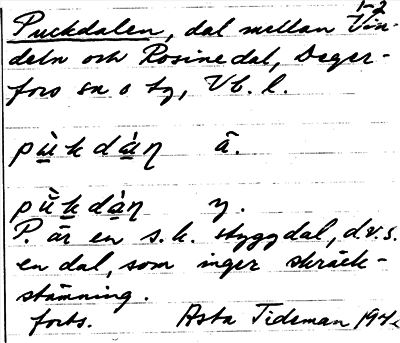 1-2
Puckdalen, dal mellan Vin-
deln och Rosinedal, Deger-
fors sn o tg, Vb. l.
pùkdàn ä.
pùkdàn y.
P. är en s.k. styggdal, d.v.s.
en dal, som inger skräck-
stämning.
forts. Asta Tideman